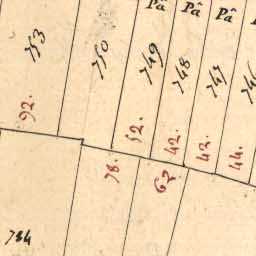 Pâ Pâ Pâ
753
750
749
748
747
92.
52.
42.
43.
44.
78.
62
734